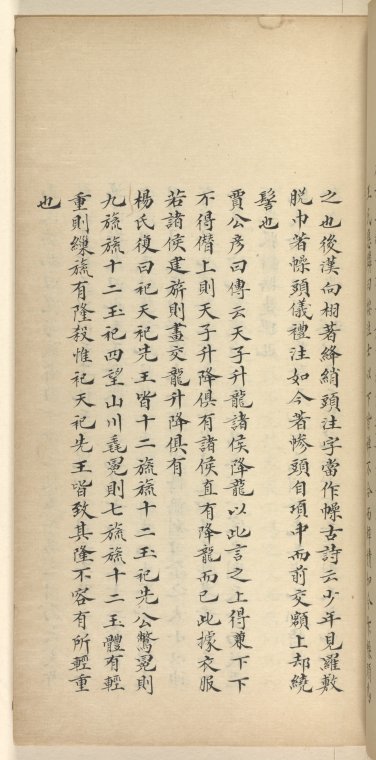 之也後漢向栩著絳綃頭注字當作幧古詩云少年見羅敷
脫巾著幧頭儀禮注如今著幓頭自項中而前交額上却繞
髻也
賈公彥曰傳云天子升龍諸侯降龍以此言之上得兼下下
不得僭上則天子升降俱有諸侯直有降龍而已此據衣服
若諸侯建旂則畫交龍升降俱有
楊氏復曰祀天祀先王皆十二旒旒十二玉祀先公鷩冕則
九旒旒十二玉祀四望山川毳冕則七旒旒十二玉體有輕
重則繅旒有隆殺惟祀天祀先王皆致其隆不容有所輕重
也